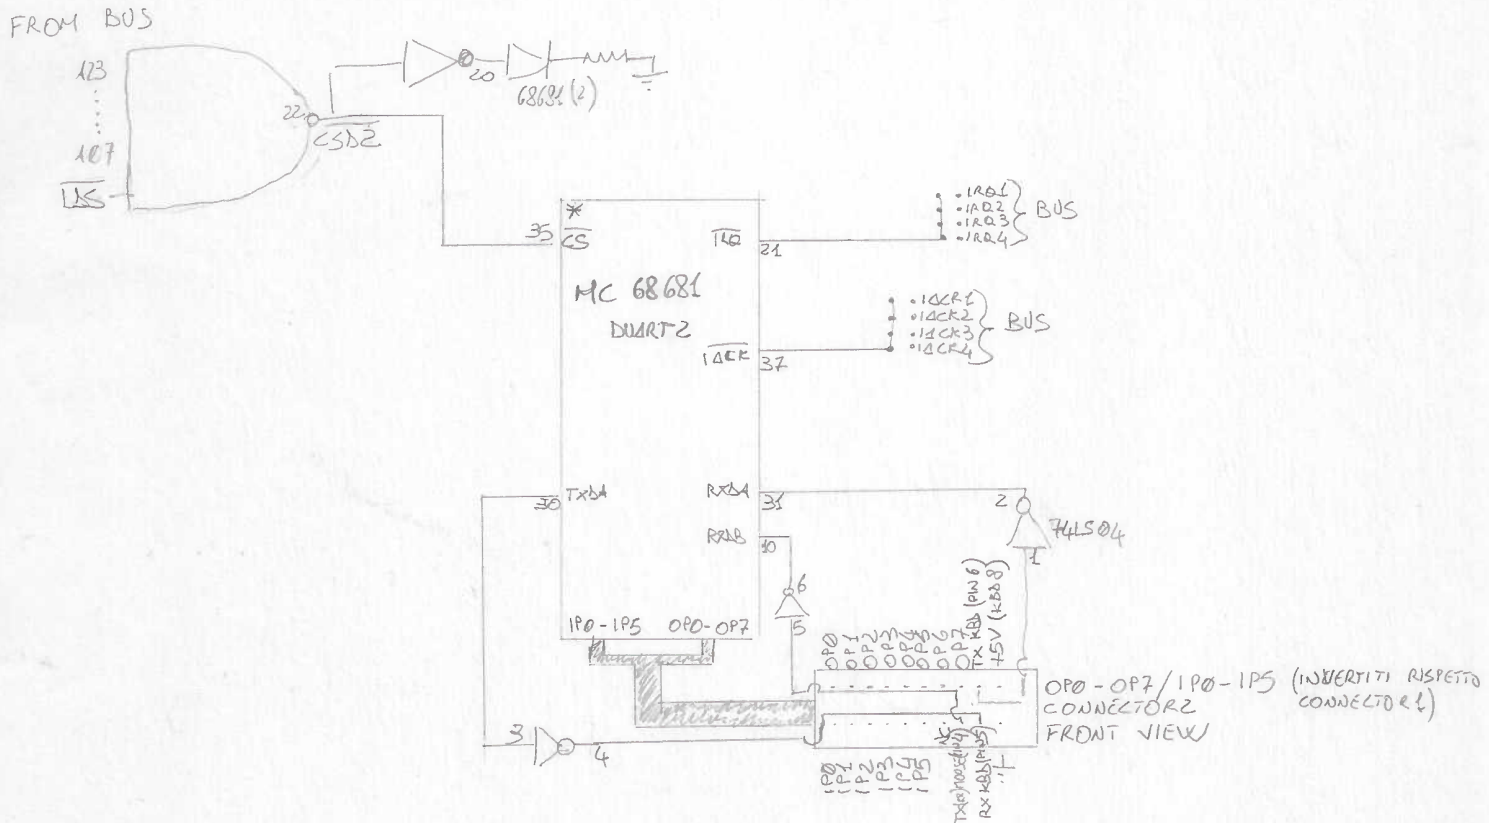 FROM BUS
123
22
20
68681(2)
CSD2
127
LDS
*
35
CS
IRQ
21
.IRQ1
.IRQ2
.IRQ3
.IRQ4
BUS
MC 68681
DUART2
.IACK1
.IACK2
.IACK3
.IACK4
BUS
IACK
37
30
TXDA
RXDA
31
2
74LS04
1
RXDB
10
6
5
IP0-IP5
OP0-OP7
OP0
OP1
OP2
OP3
OP4
OP5
OP6
OP7
TX KBD (PIN 6)
+5V (KBD 8)
OP0-OP7/IP0-IP5 (INVERTITI RISPETTO
CONNECTOR1)
CONNECTOR2
FRONT VIEW
3
4
IP0
IP1
IP2
IP3
IP4
IP5
RX KBD (PIN5)